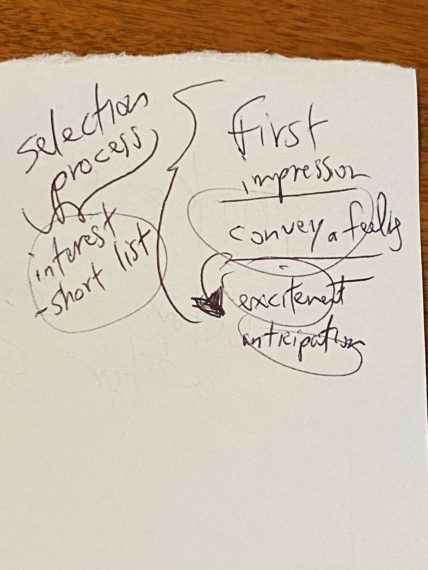 selection
process
interest
- short list
first
impression
convey a feeling
excitement
anticipation